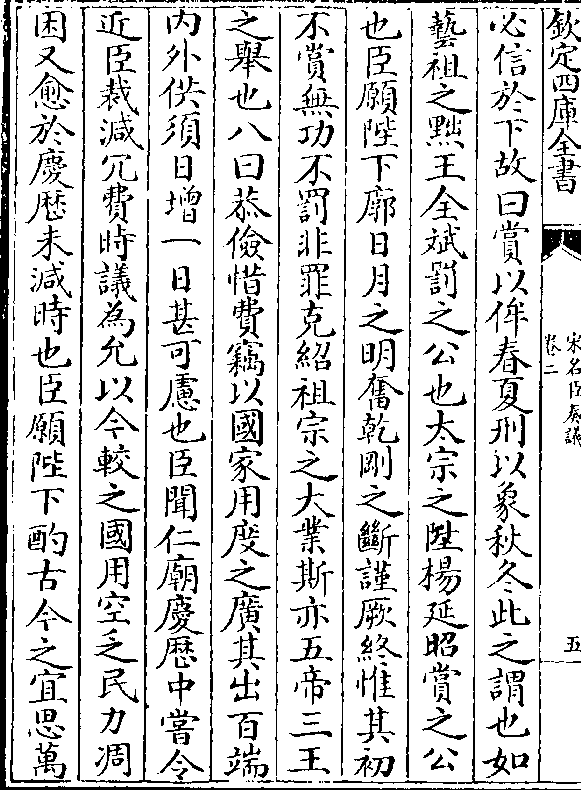 欽定四庫全書
宋名臣奏議
卷二
五
必信於下故曰賞以侔春夏刑以象秋冬此之謂也如
藝祖之黜王全斌罰之公也太宗之陞楊延昭賞之公
也臣願陛下廓日月之明奮乾剛之斷謹厥終惟其初
不賞無功不罰非罪克紹祖宗之大業斯亦五帝三王
之舉也八曰恭儉惜費竊以國家用度之廣其出百端
内外供須日增一日甚可慮也臣聞仁廟慶歴中嘗令
近臣裁減冗費時議為允以今較之國用空乏民力凋
困又愈於慶歴未減時也臣願陛下酌古今之宜思萬